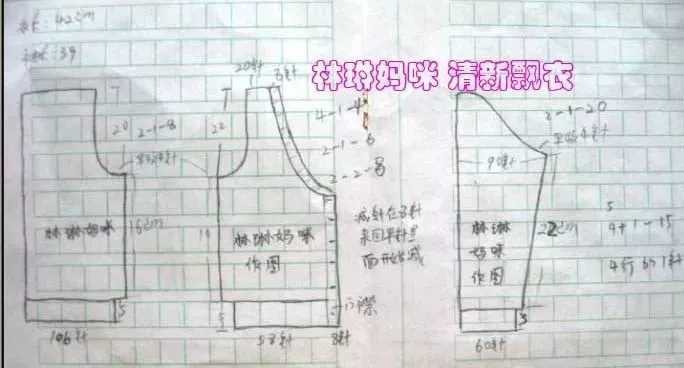 衣长:42cm
袖长:39
林琳妈咪 清新飘衣
20针
8针
20
2-1-8
22
4-1-4
2-1-6
2-2-8
2-1-20
平收4针
90针
16cm
林琳妈咪
林琳妈咪
作图
减针在8针
来回平针里
面开始减
门襟
林琳
妈咪
作图
22cm
5
4+1-15
4行加1针
5
5
3
106针
53针
8针
60针